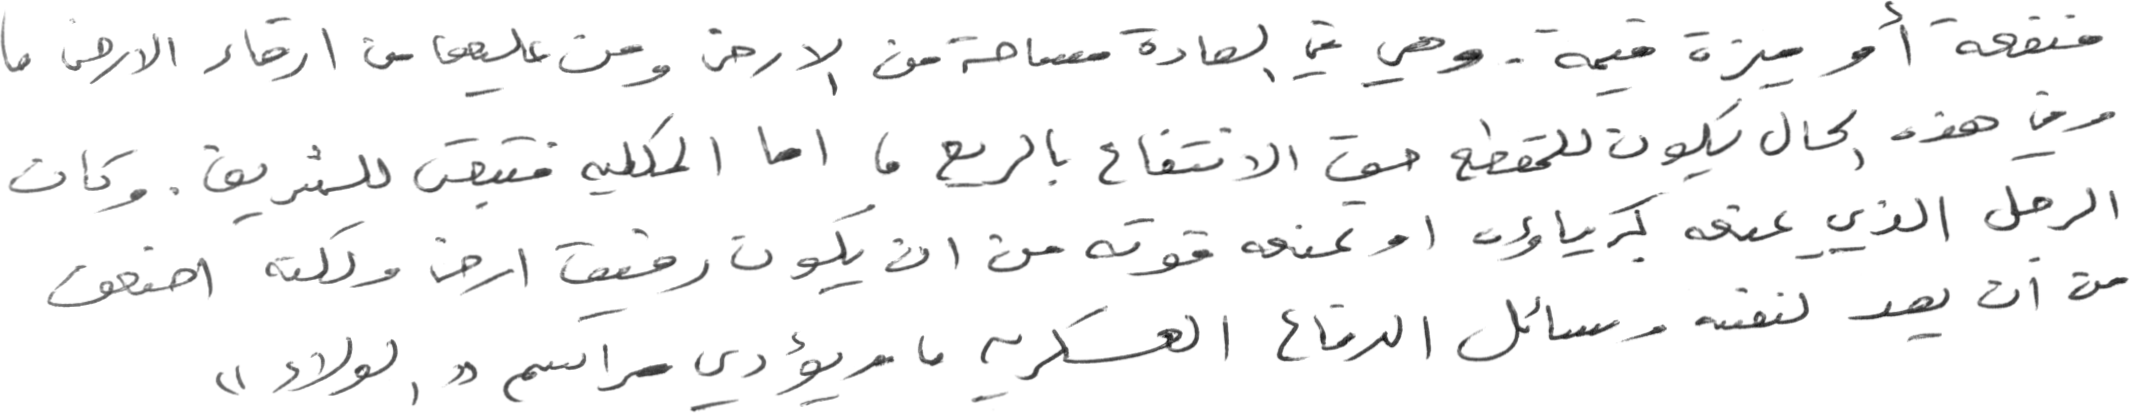 منفعة أو ميزة قيمة . وهي في العادة مساحة من الارض ومن عليها من ارقاء الارض ،
وفي هذه الحال يكون للمقطع حق الانتفاع بالريع ، اما الملكيه فتبقى للشريف . وكان
الرجل الذي تمنعه كبرياؤه او تمنعه قوته من ان يكون رقيق ارض ولكنه اضعف
من أن يعد لنفسه وسائل الدفاع العسكريه ، ويؤدي مراسم « الولاء »